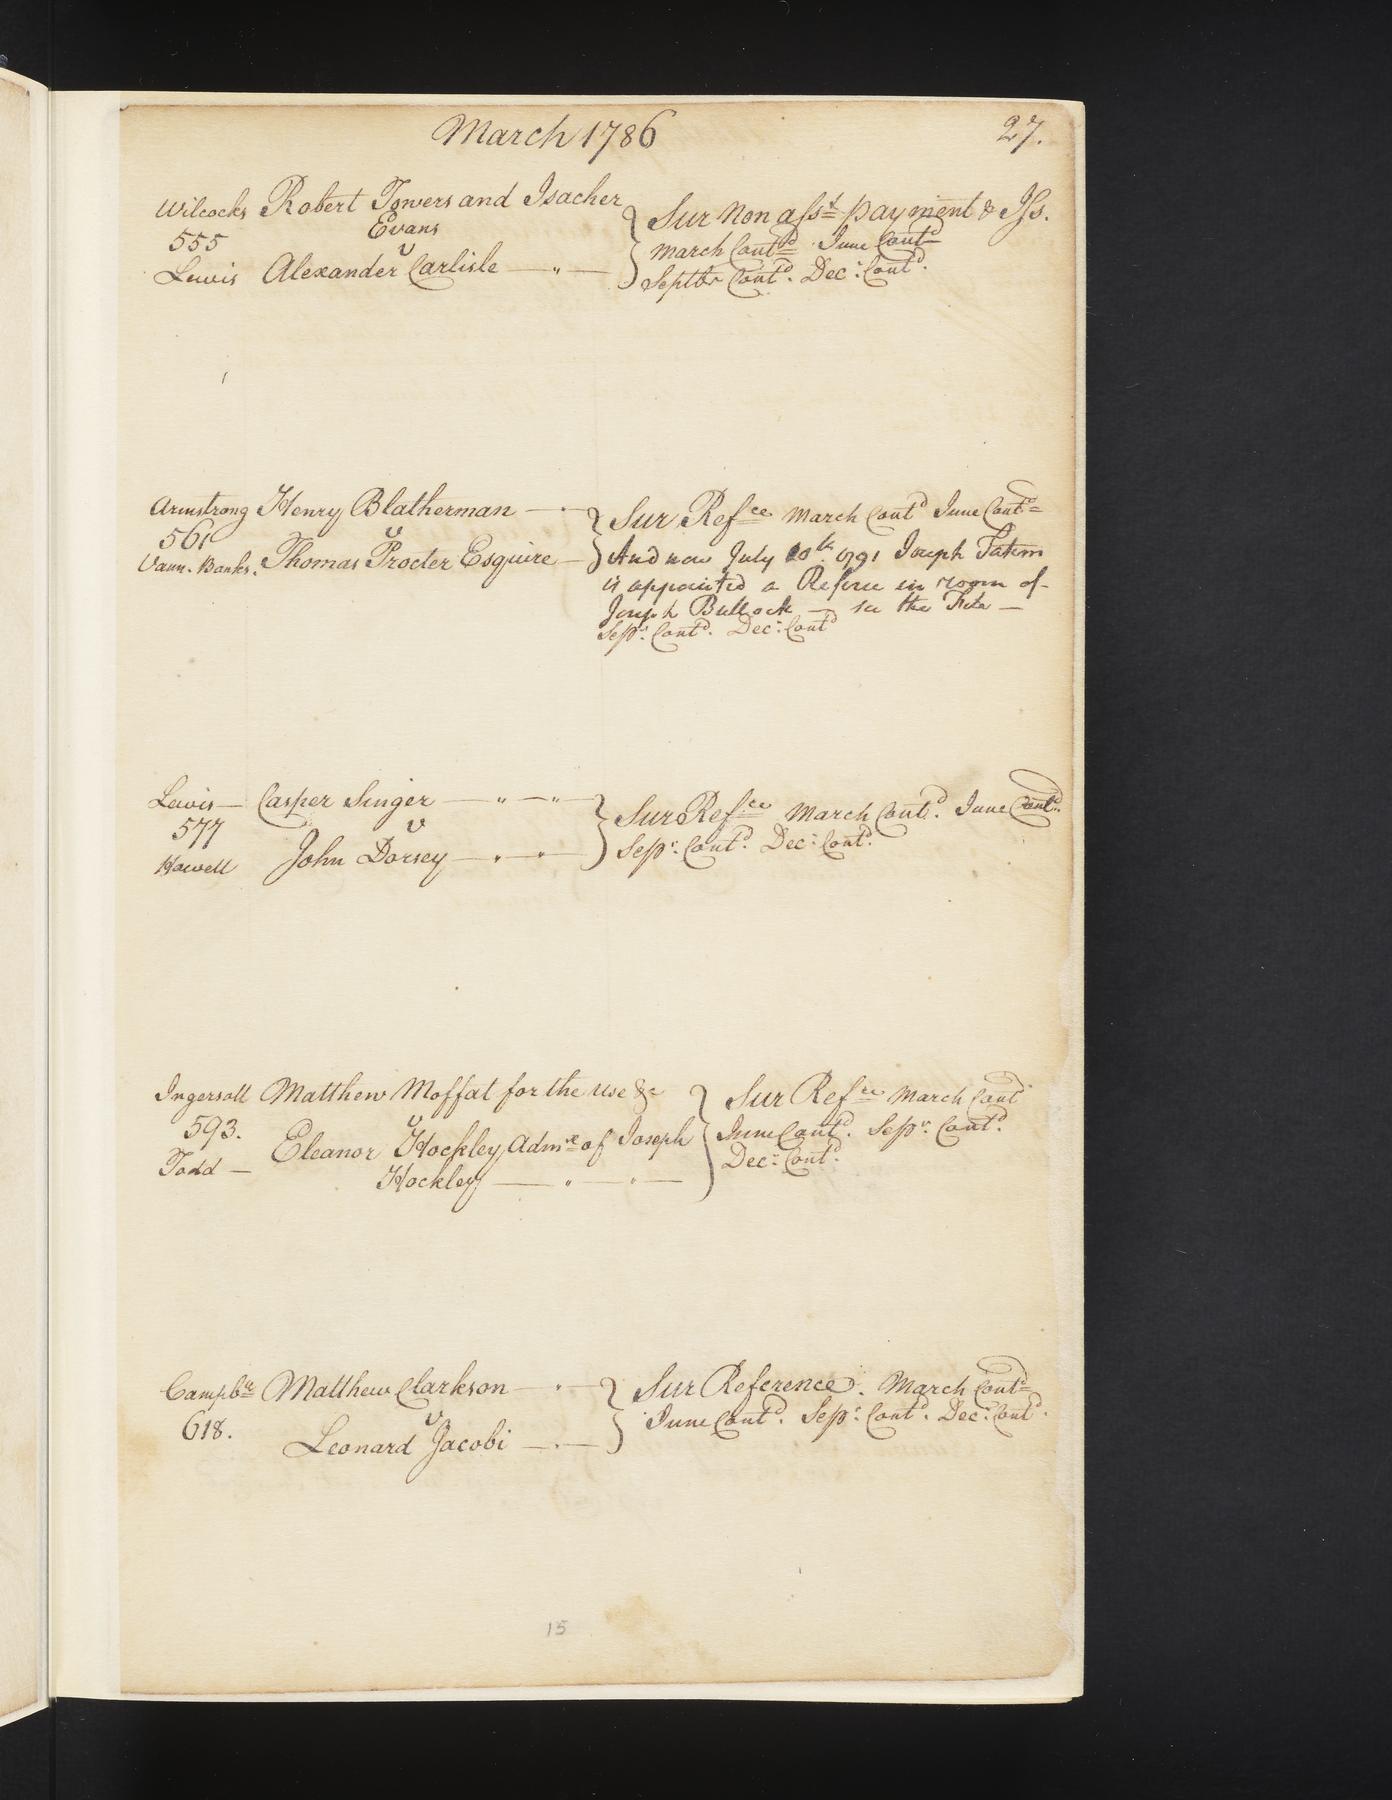 March 1786
27.
Wilcocks Robert Towers and Isacher
Evans
555
v
Lewis Alexander Carlisle
Sur Non asst payment & Iss.
March Contd June Contd
Septbr Contd. Decr Contd.
Armstrong Henry Blatherman
561
v
Vann. Banks. Thomas Procter Esquire
Sur Refce March Contd June Contd
And now July 20th 1791 Joseph Tatem
is appointed a Referee in room of
Joseph Bullock — see the File —
Sepr. Contd. Decr Contd
Lewis — Casper Singer
577
v
Howell John Dorsey
Sur Refce March Contd. June Contd.
Sepr. Contd. Decr Contd.
Ingersoll Matthew Moffat for the use &c
593.
v
Todd — Eleanor Hockley Admx of Joseph
Hockley
Sur Refce March Contd
June Contd. Sepr. Contd.
Decr Contd.
Campbll Matthew Clarkson
618.
v
Leonard Jacobi
Sur Reference. March Contd
June Contd. Sepr. Contd. Decr Contd.
15